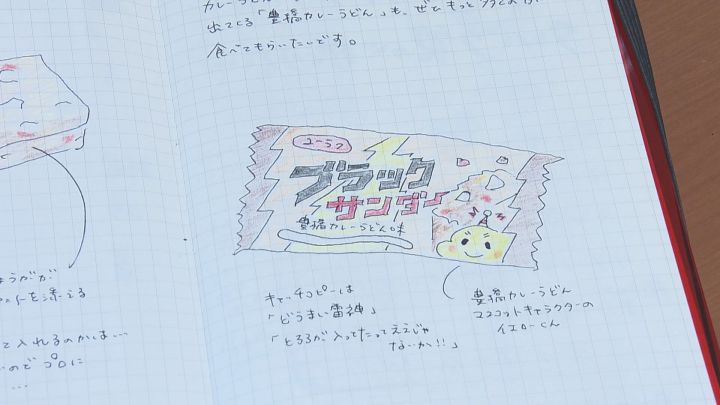 カレーうどん
出てくる「豊橋カレーうどん」も、ぜひもっと
食べてもらいたいです。
ユーラク
ブラック
サンダー
豊橋カレーうどん味
キャッチコピーは
「どうまい雷神」
「とろろが入ってたってええじゃ
ないか!!」
豊橋カレーうどん
マスコットキャラクターの
イエローくん
ょうがが
を添える
て入れるのかは…
いのでプロに
…